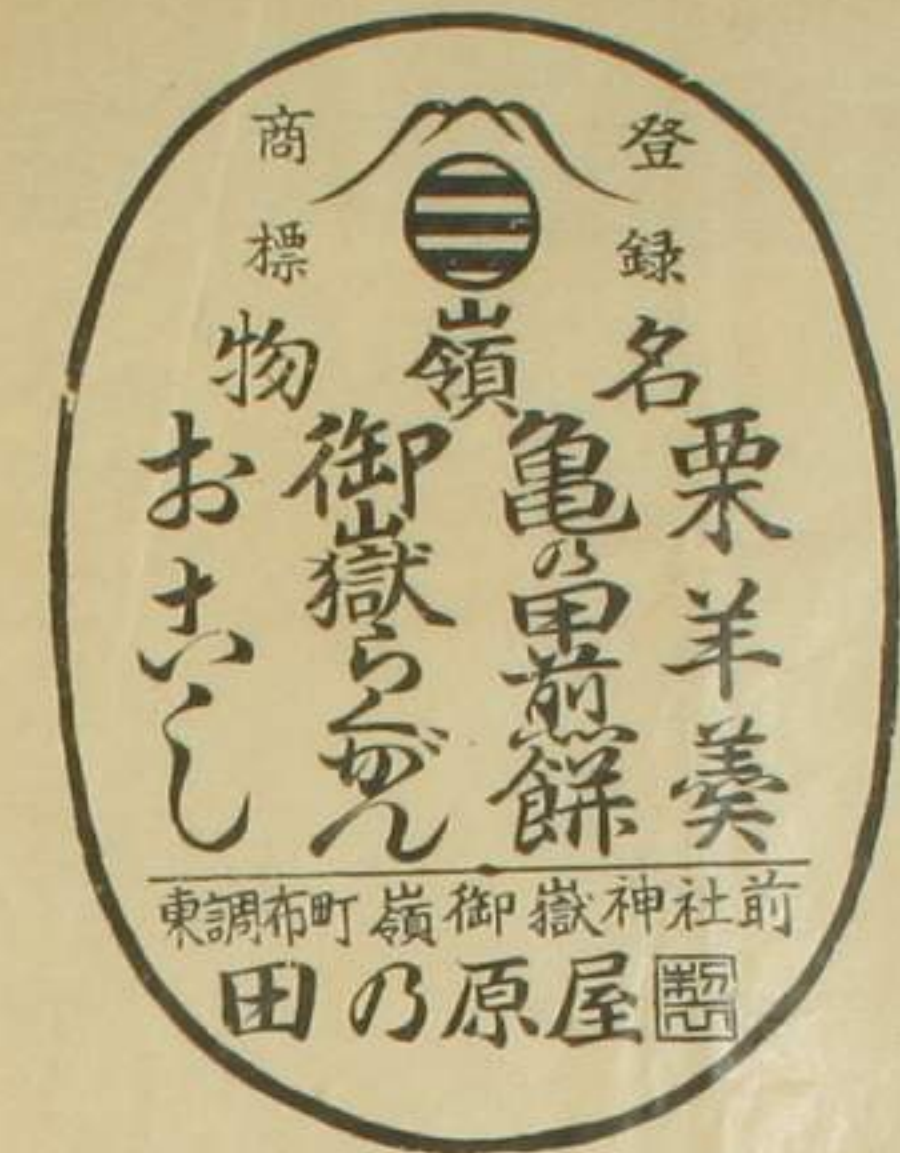 登録
商標
名嶺物
栗羊羹
亀の甲煎餅
御嶽らくがん
おこし
東調布町嶺御嶽神社前
田乃原屋製